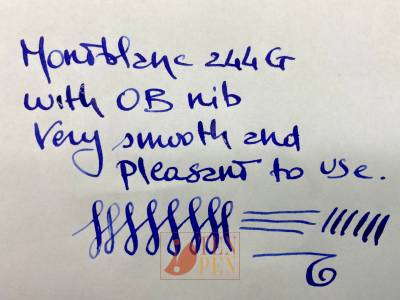 Montblanc 244 G
with OB nib
Very smooth and
pleasant to use.
PEN